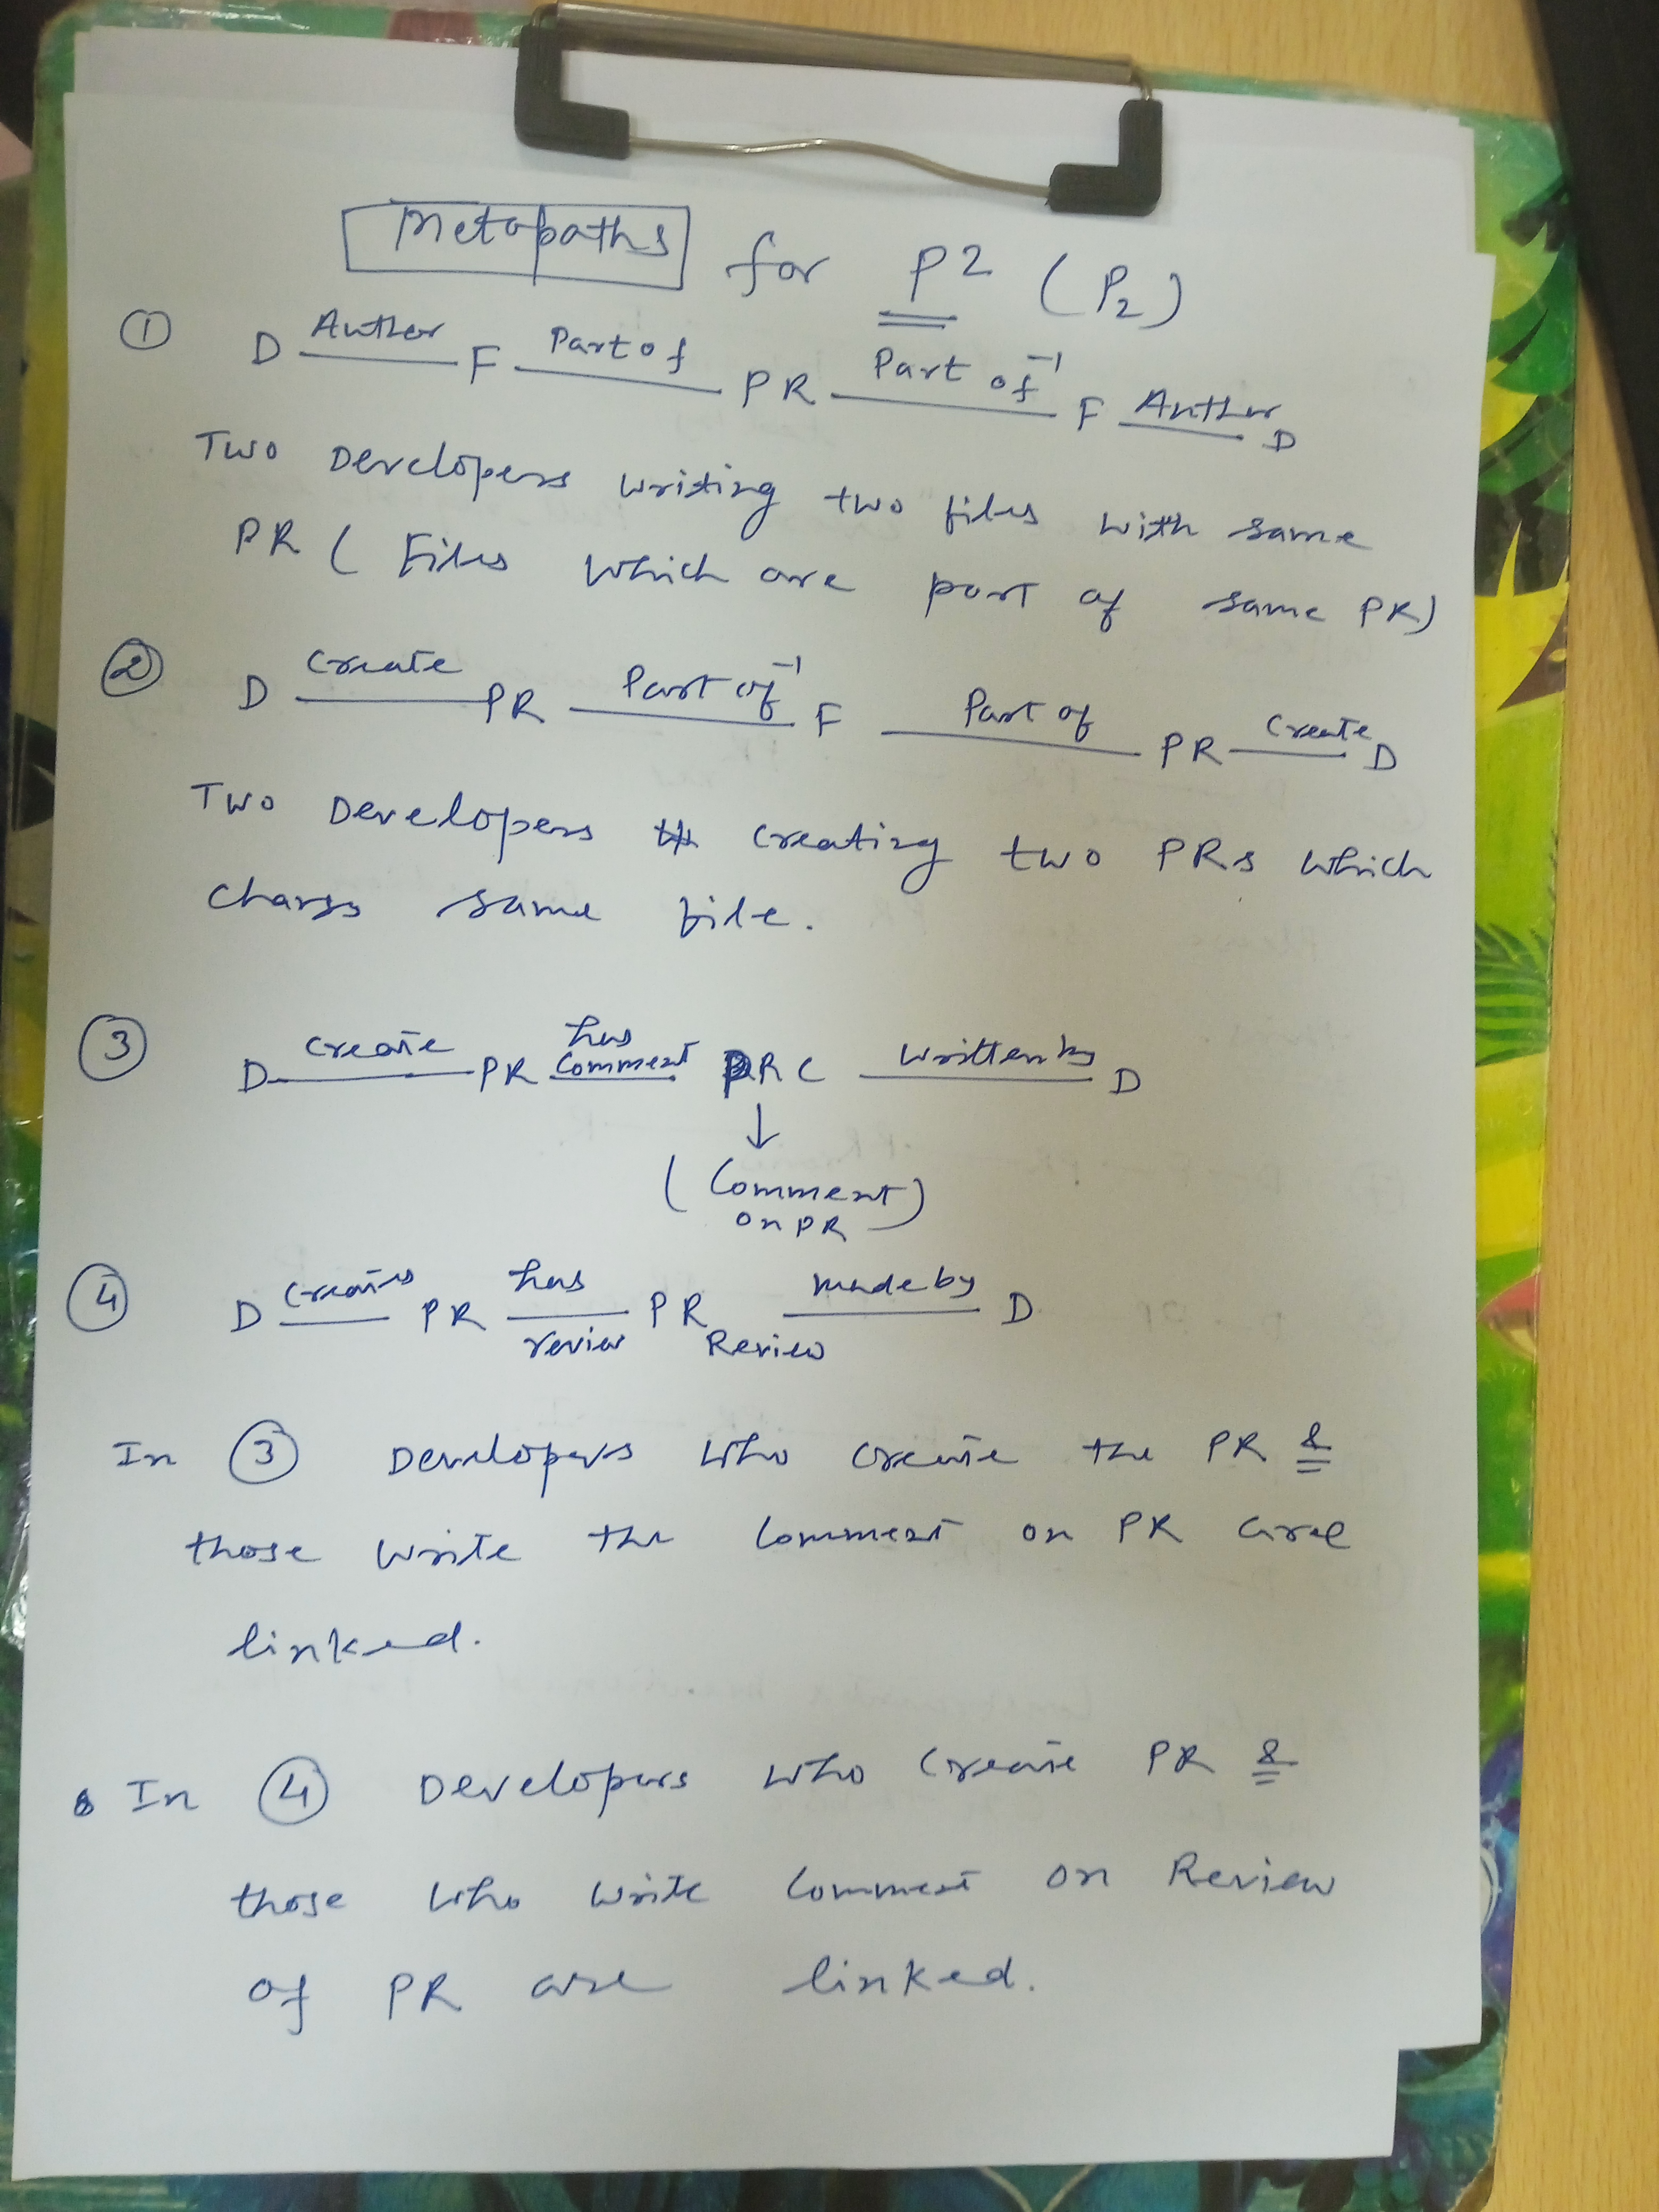 Metapaths for P2 (P₂)
① D Author F Part of PR Part of⁻¹ F Author D
Two Developers writing two files with same
PR ( Files which are part of same PR)
② D Create PR Part of⁻¹ F Part of PR Create D
Two Developers creating two PRs which
changs same file.
③ D create PR has comment PRC Written by D
↓
(Comment
on PR)
④ D creates PR has review PR Review made by D
In ③ Developers who create the PR &
those write the comment on PR are
linked.
In ④ Developers who create PR &
those who write comment on Review
of PR are linked.